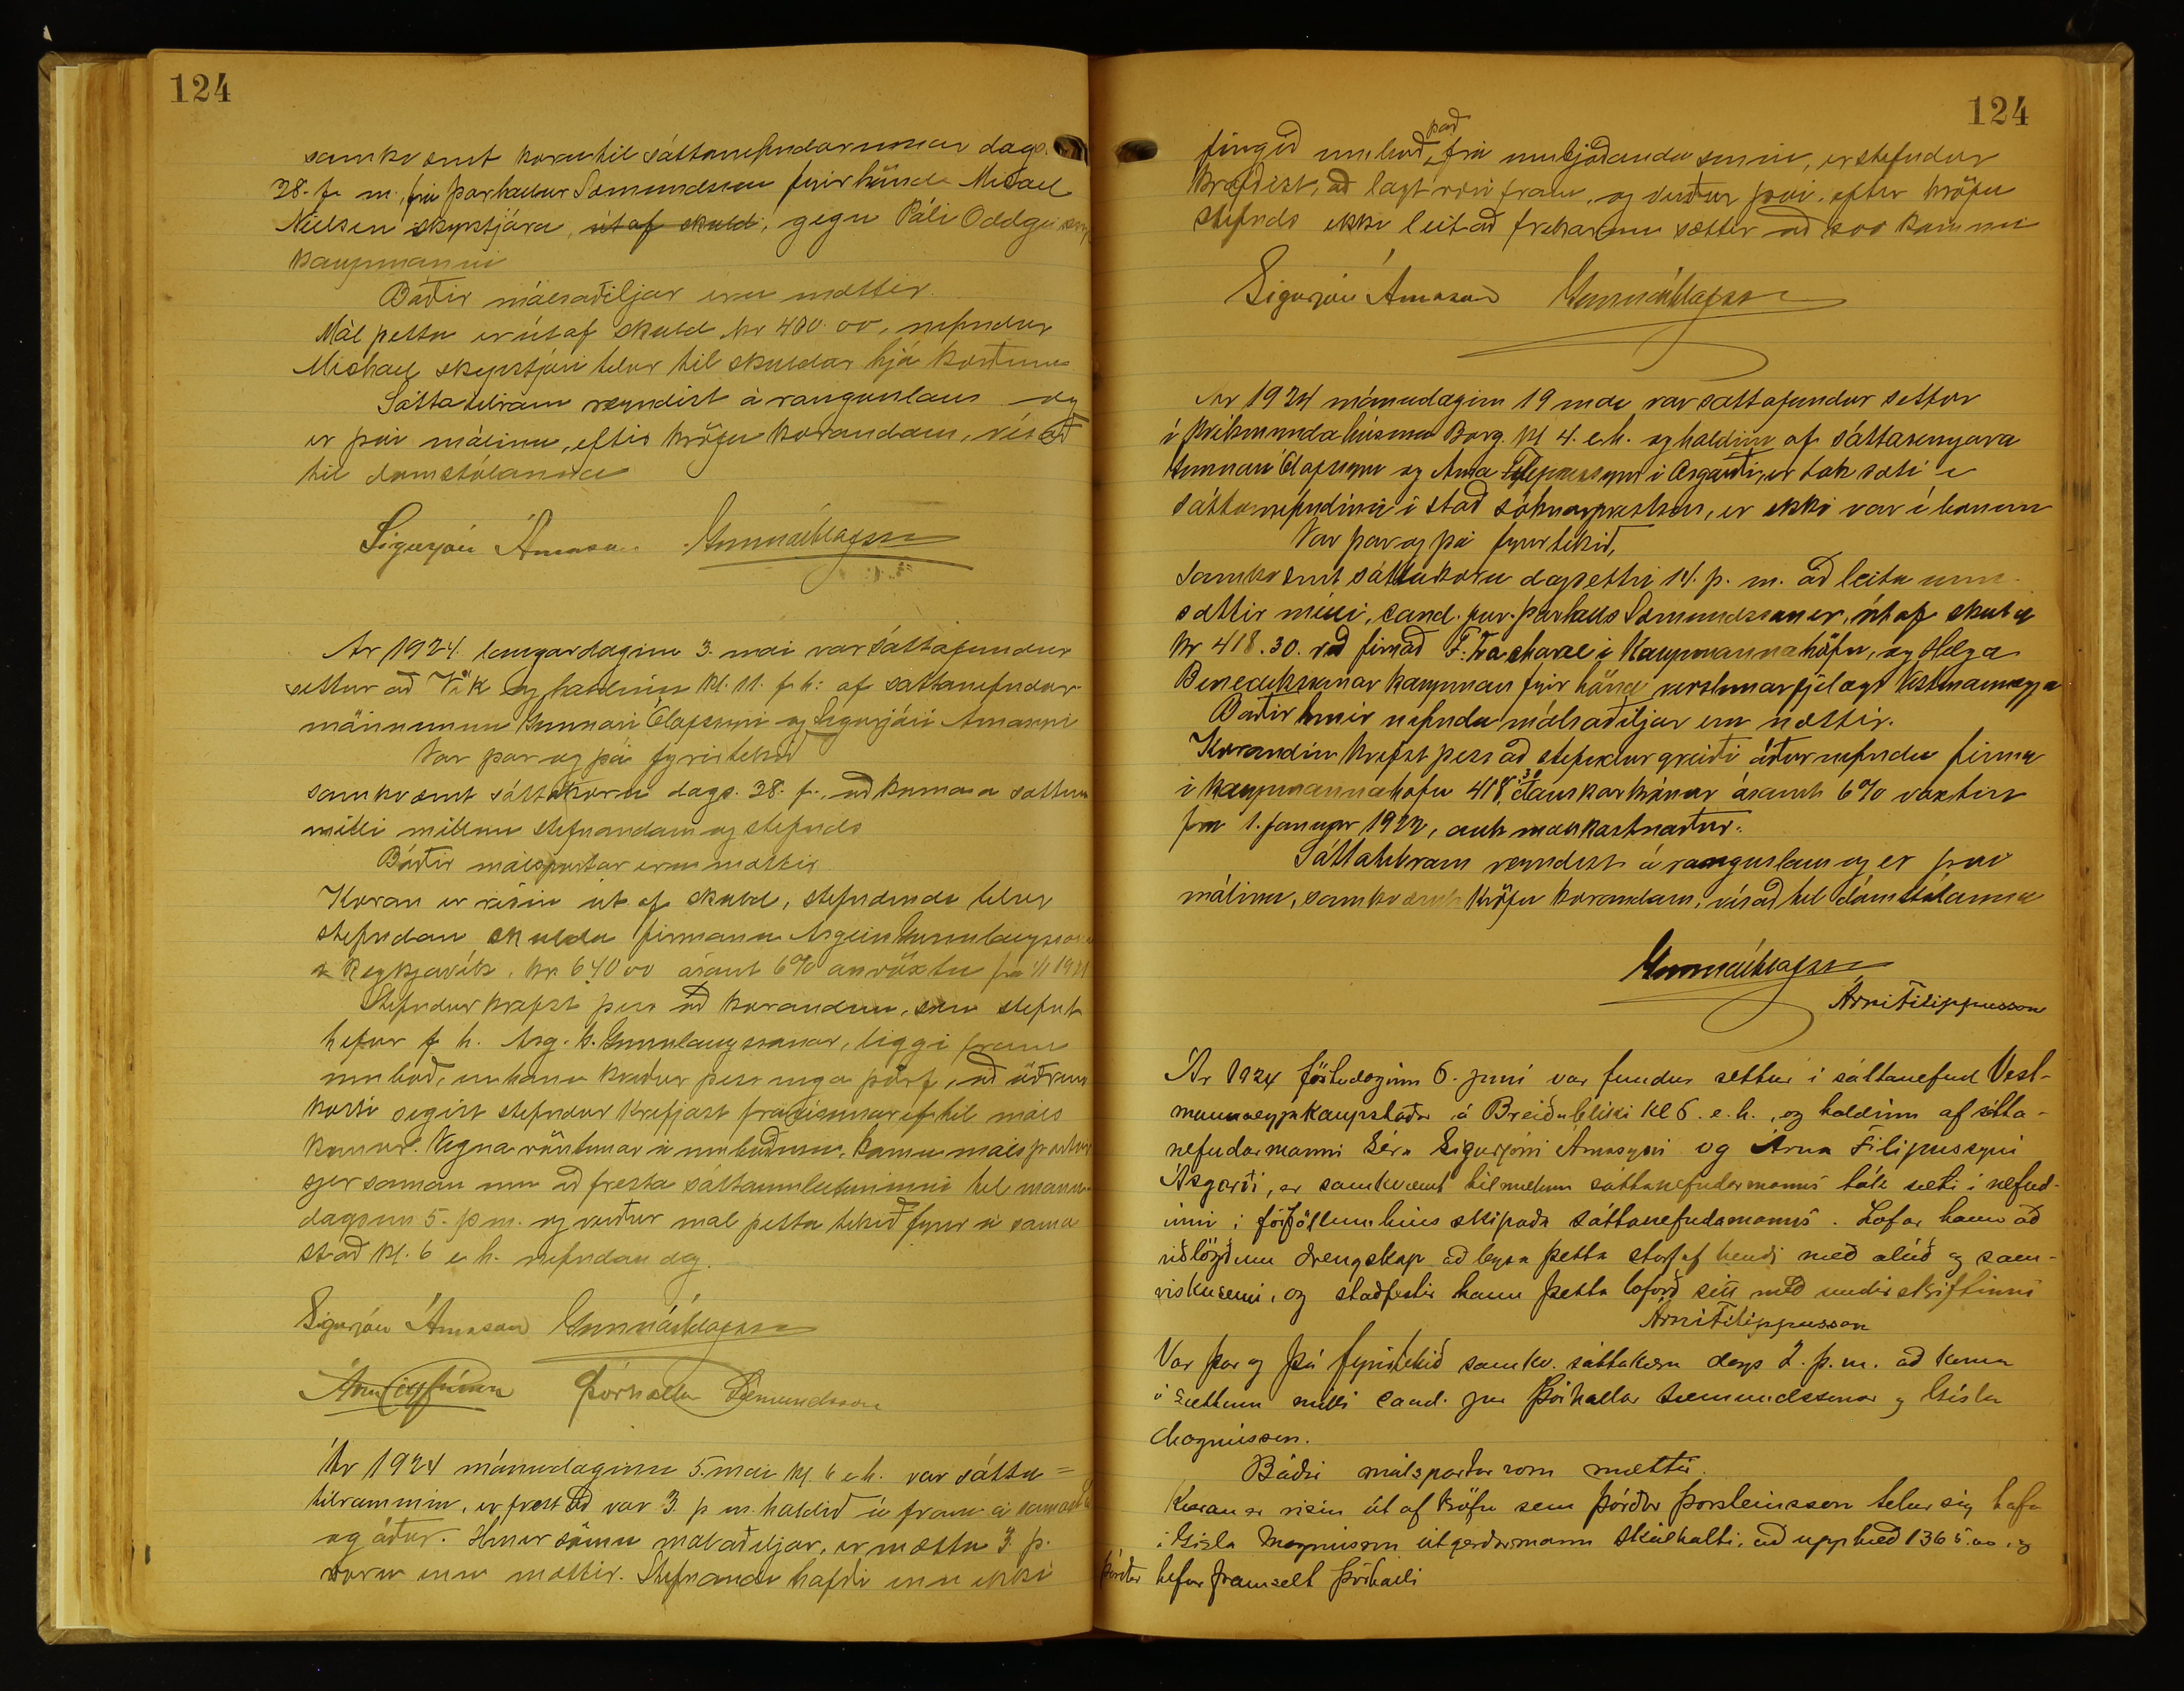 124
samkvæmt kæru til sáttanefndarinnar dags.
28. f. m. frá Þorhallur Sæmundsson fyrir hönd Micael
Nielsen skipstjóra, út af skuld, gegn Páli Oddgeirss
kaupmanni
Báðir málsaðiljar eru mættir.
Mál þetta er út af skuld kr 400.00, nefndur
Michael skipstjóri telur til skuldar hjá kærðum
Sáttatilraun reyndist árangurslaus og
er því málinu, eftir kröfu kærandans, vísað
til domstólanna
Sigurjón Árnason Gunnar Ólafsson
Ár 1924 laugardaginn 3. mai var sáttafundur
settur að Vík og haldinn kl. 11. f.h: af sáttanefndar-
mönnunum Gunnari Ólafssyni og Sigurjóni Árnasyni
Var þar og þá fyrirtekið
samkvæmt sáttakæru dags. 28. f., að koma á sáttum
milli millum stefnandans og stefnds
Báðir málspartar eru mættir
Kæran er risin út af skuld, stefnandi telur
stefndan skulda firmanu Asgeir Gunnlaugsson
Reykjavík. kr 640.00 ásamt 6% ársvöxtu frá 1/1 1921
Stefndur krefst þess að kærandinn, sem stefnt
hefur f. h. Asg. G. Gunnlaugssonar, liggi fram
umboð, en hann kveður þess enga þörf, að öðrum
kosti segist stefndur krefjast frávísunar ef til máls
kemur. Vegna vöntunar á umboðinu, komu málspartar
sjer saman um að fresta sáttaumleituninni til mánu-
dagsins 5. þ.m. og verður mál þetta tekið fyrir á sama
stað kl. 6 e. h. nefndan dag.
Sigurjón Árnason Gunnar Ólafsson
Þórhallur Sæmundsson
Ár 1924 mánudaginn 5. mai kl. 6 e.h. var sátta=
tilraunin, er frestað var 3. þ m. haldið á fram á sama st
og áður. Hinir sömu málsaðiljar, er mættu 3. þ.
voru enn mættir. Stefnandi hafði enn ekki
124
fengið umboð, það frá umbjóðanda sínum, er stefndur
krefðist, að lagt væri fram, og verður því, eftir kröfu
stefnds ekki leitað frekar um sættir að svo komnu
Sigurjón Árnason Gunnar Ólafsson
Ár 1924 mánudaginn 19 mai var sáttafundur settur
í húsinu Borg. kl 4. e.h. og haldinn af
Gunnari Ólafssyni og Árna Filippussyni í Asgarði, er tók sæti í
sáttanefndinni í stað sóknarprestsins, er ekki var í bænum
Var þar og þá fyrirtekið,
Samkvæmt sáttakæru dagsettri 14. þ. m. að leita um
sættir milli, cand. jur. Þorhalls Sæmundssonar, út af skuld
kr 418.30. við firmað F. Zachariae í Kaupmannahöfn, og Helga
Benediktssonar kaupmans fyrir hönd verslunarfjelags Vestmannaeyja
Báðir hinir nefndu málsaðiljar eru mættir.
Kærandinn krefst þess að stefndur greiði áðurnefndu firma
i kaupmannahöfn 418.30 danskar krónur ásamt 6% vöxtum
frá 1. Januar 1922, auk málskostnaður.
Sáttatilraun reyndist árangurslaus og er því
málinu, samkvæmt kröfu kærandans, vísað til dómstólanna
Gunnar Ólafsson
Árni Filippusson
Ár 1924 föstudaginn 6. júní var fundur settur í sáttanefnd Vest-
mannaeyjakaupstaðar á Breiðabliki kl 6. e. h., og haldinn af sátta-
nefndarmanni séra Sigurjóni Árnasyni og Árna Filipussyni
Ásgarði, er samkvæmt tilmælum sáttanefndarmanns tók sæti í nefnd-
inni í forföllum hins skipaða sáttanefndamanns. Lofar hann að
viðlögðum drengskap að leysa þetta starf af hendi með alúð og sam-
viskusemi, og staðfestir hann þetta loforð sitt með undirskriftinni
Árni Filippusson
Var þar og þá fyrirtekið samkv. sáttakæru dags 2. þ. m. að koma
á sættum milli cand. jur Þórhallar Sæmundssonar og Gísla
Magnússon.
Báðir málspartar voru mættir.
Kæran er risin út af kröfu sem Þórður Þorsteinsson telur sig hafa
í Gísla Magnússon útgerðarmann Skálholti, að upphæð 1365.00, og
Þórður hefur framselt Þórhalli